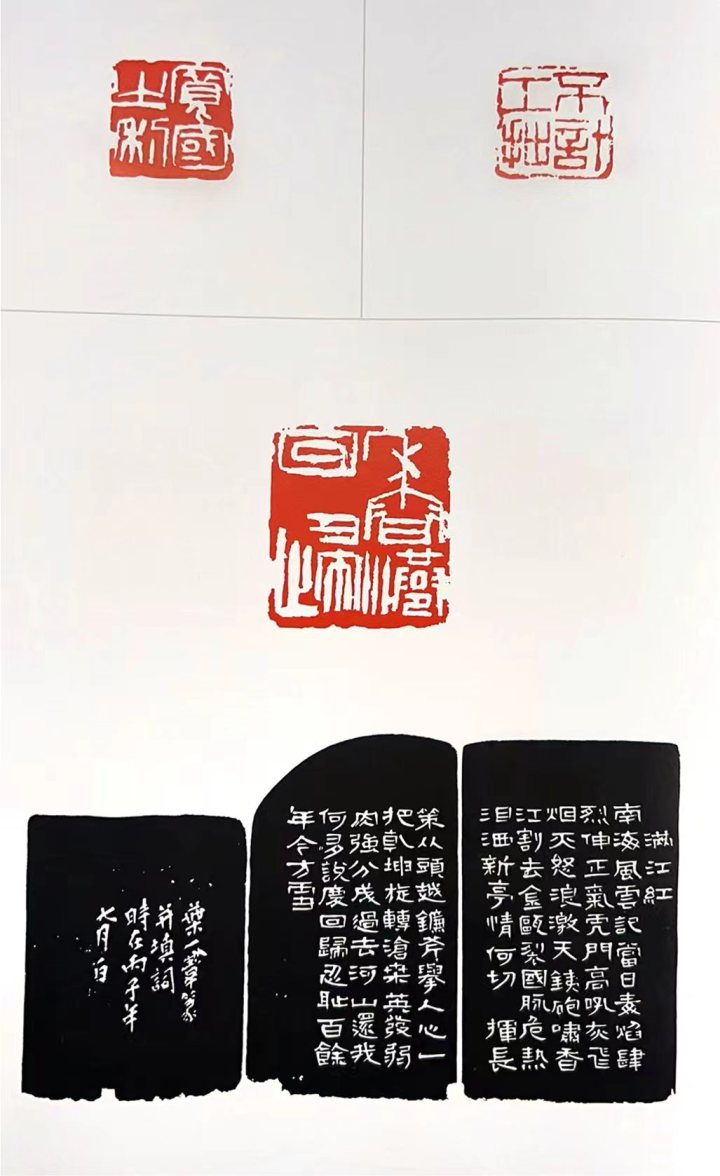 國之利
不計工拙
香港回歸
滿江紅
南海風雲記當日毒焰肆
烈伸正氣虎門高吼灰飞
烟灭怒浪激天銕砲嘯香
江割去金甌裂國脉危熱
泪洒新亭情何切 揮長
策从頭越鐮斧舉人心一
把乾坤旋轉滄桒英發弱
肉強分成過去河山還我
何多說慶回歸忍恥百餘
年今方雪
葉一葦篆
并填詞
時在丙子年
七月一日